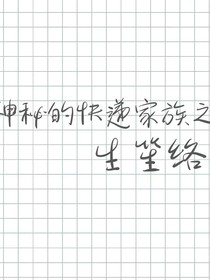 神秘的快递家族之
生笙络